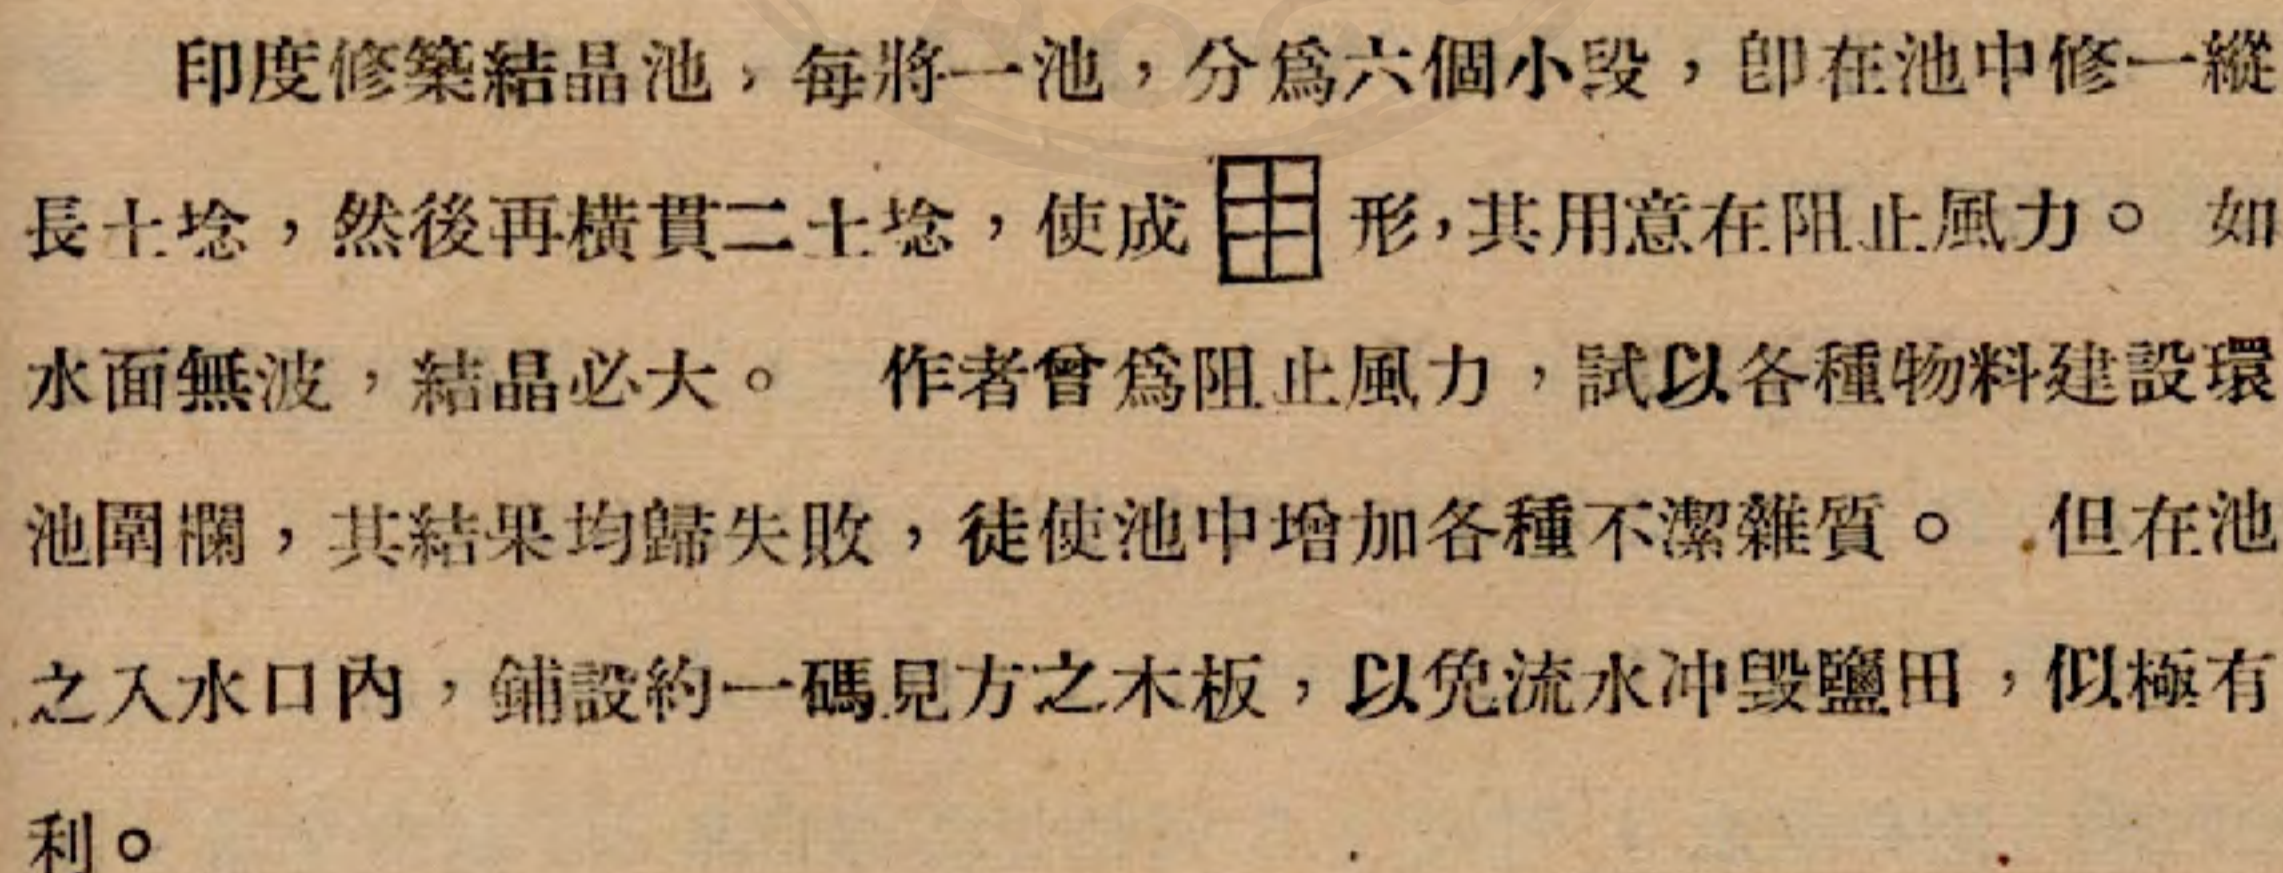 印度修築結晶池，每將一池，分爲六個小段，卽在池中修一縱
長土埝，然後再橫貫二土埝，使成 形，其用意在阻止風力。 如
水面無波，結晶必大。 作者曾爲阻止風力，試以各種物料建設環
池圍欄，其結果均歸失敗，徒使池中增加各種不潔雜質。 但在池
之入水口內，鋪設約一碼見方之木板，以免流水冲毀鹽田，似極有
利。